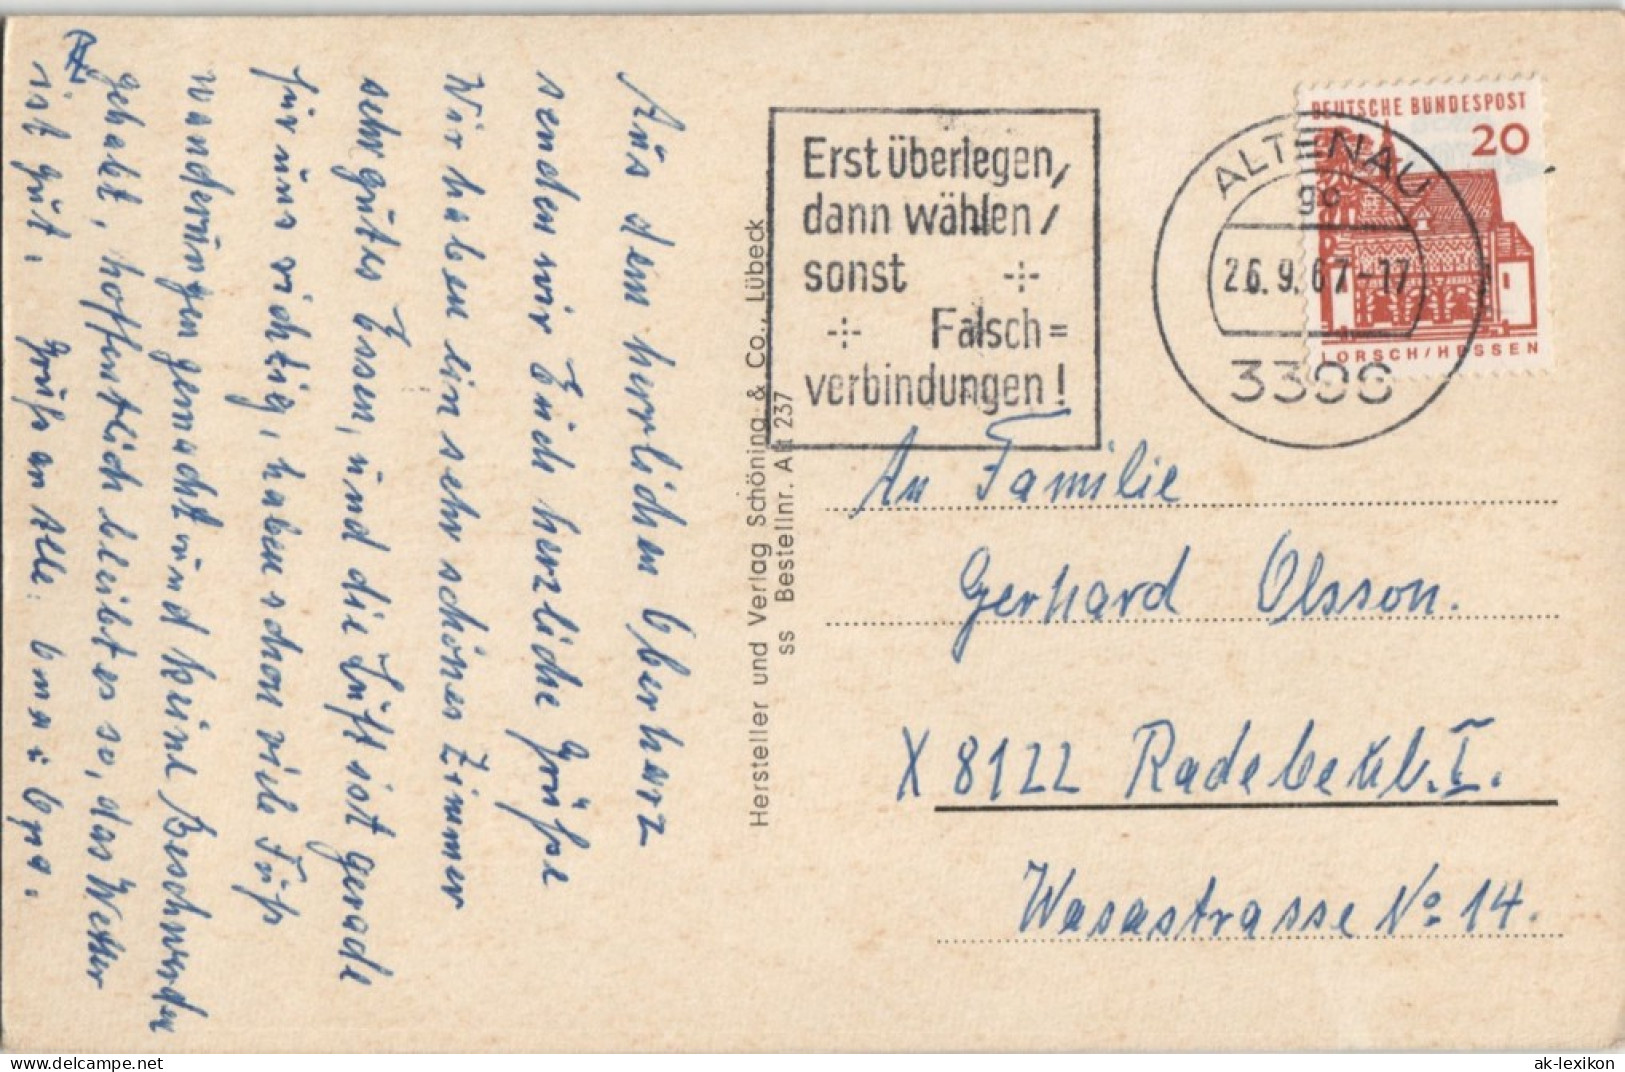 Aus dem herrlichen Oberharz
senden wir Euch herzliche Grüße
Wir haben ein sehr schönes Zimmer
sehr gutes Essen, und die Luft ist gerade
für uns richtig, haben schon viele Fuß
wanderungen gemacht und keine Beschwerden
gehabt, hoffentlich bleibt es so, das Wetter
ist gut. Gruß an Alle. Oma & Opa.
Hersteller und Verlag Schöning & Co., Lübeck
ss Bestellnr. Alt 237
Erst überlegen,
dann wählen,
sonst -:-
-:- Falsch=
verbindungen!
ALTENAU
26.9.67-17
DEUTSCHE BUNDESPOST
20
LORSCH/HESSEN
An Familie
Gerhard Olsson.
X 8122 Radebeul I.
Wasastrasse No 14.
ak-lexikon